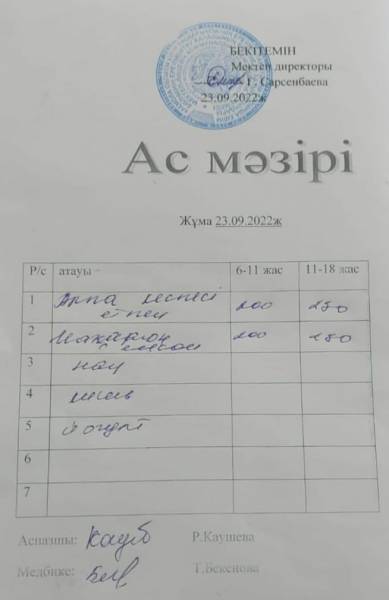 БЕКІТЕМІН
Мектеп директоры
Г. Сарсенбаева
23.09.2022ж
Ас мәзірі
Жұма 23.09.2022ж
Р/с атауы 6-11 жас 11-18 жас
1 Арпа кеспесі 200 250
етпен
2 Макарон 100 150
3 нан
4
5 йогурт
6
7
Аспазшы: Р.Каушева
Медбике: Т.Бекенова